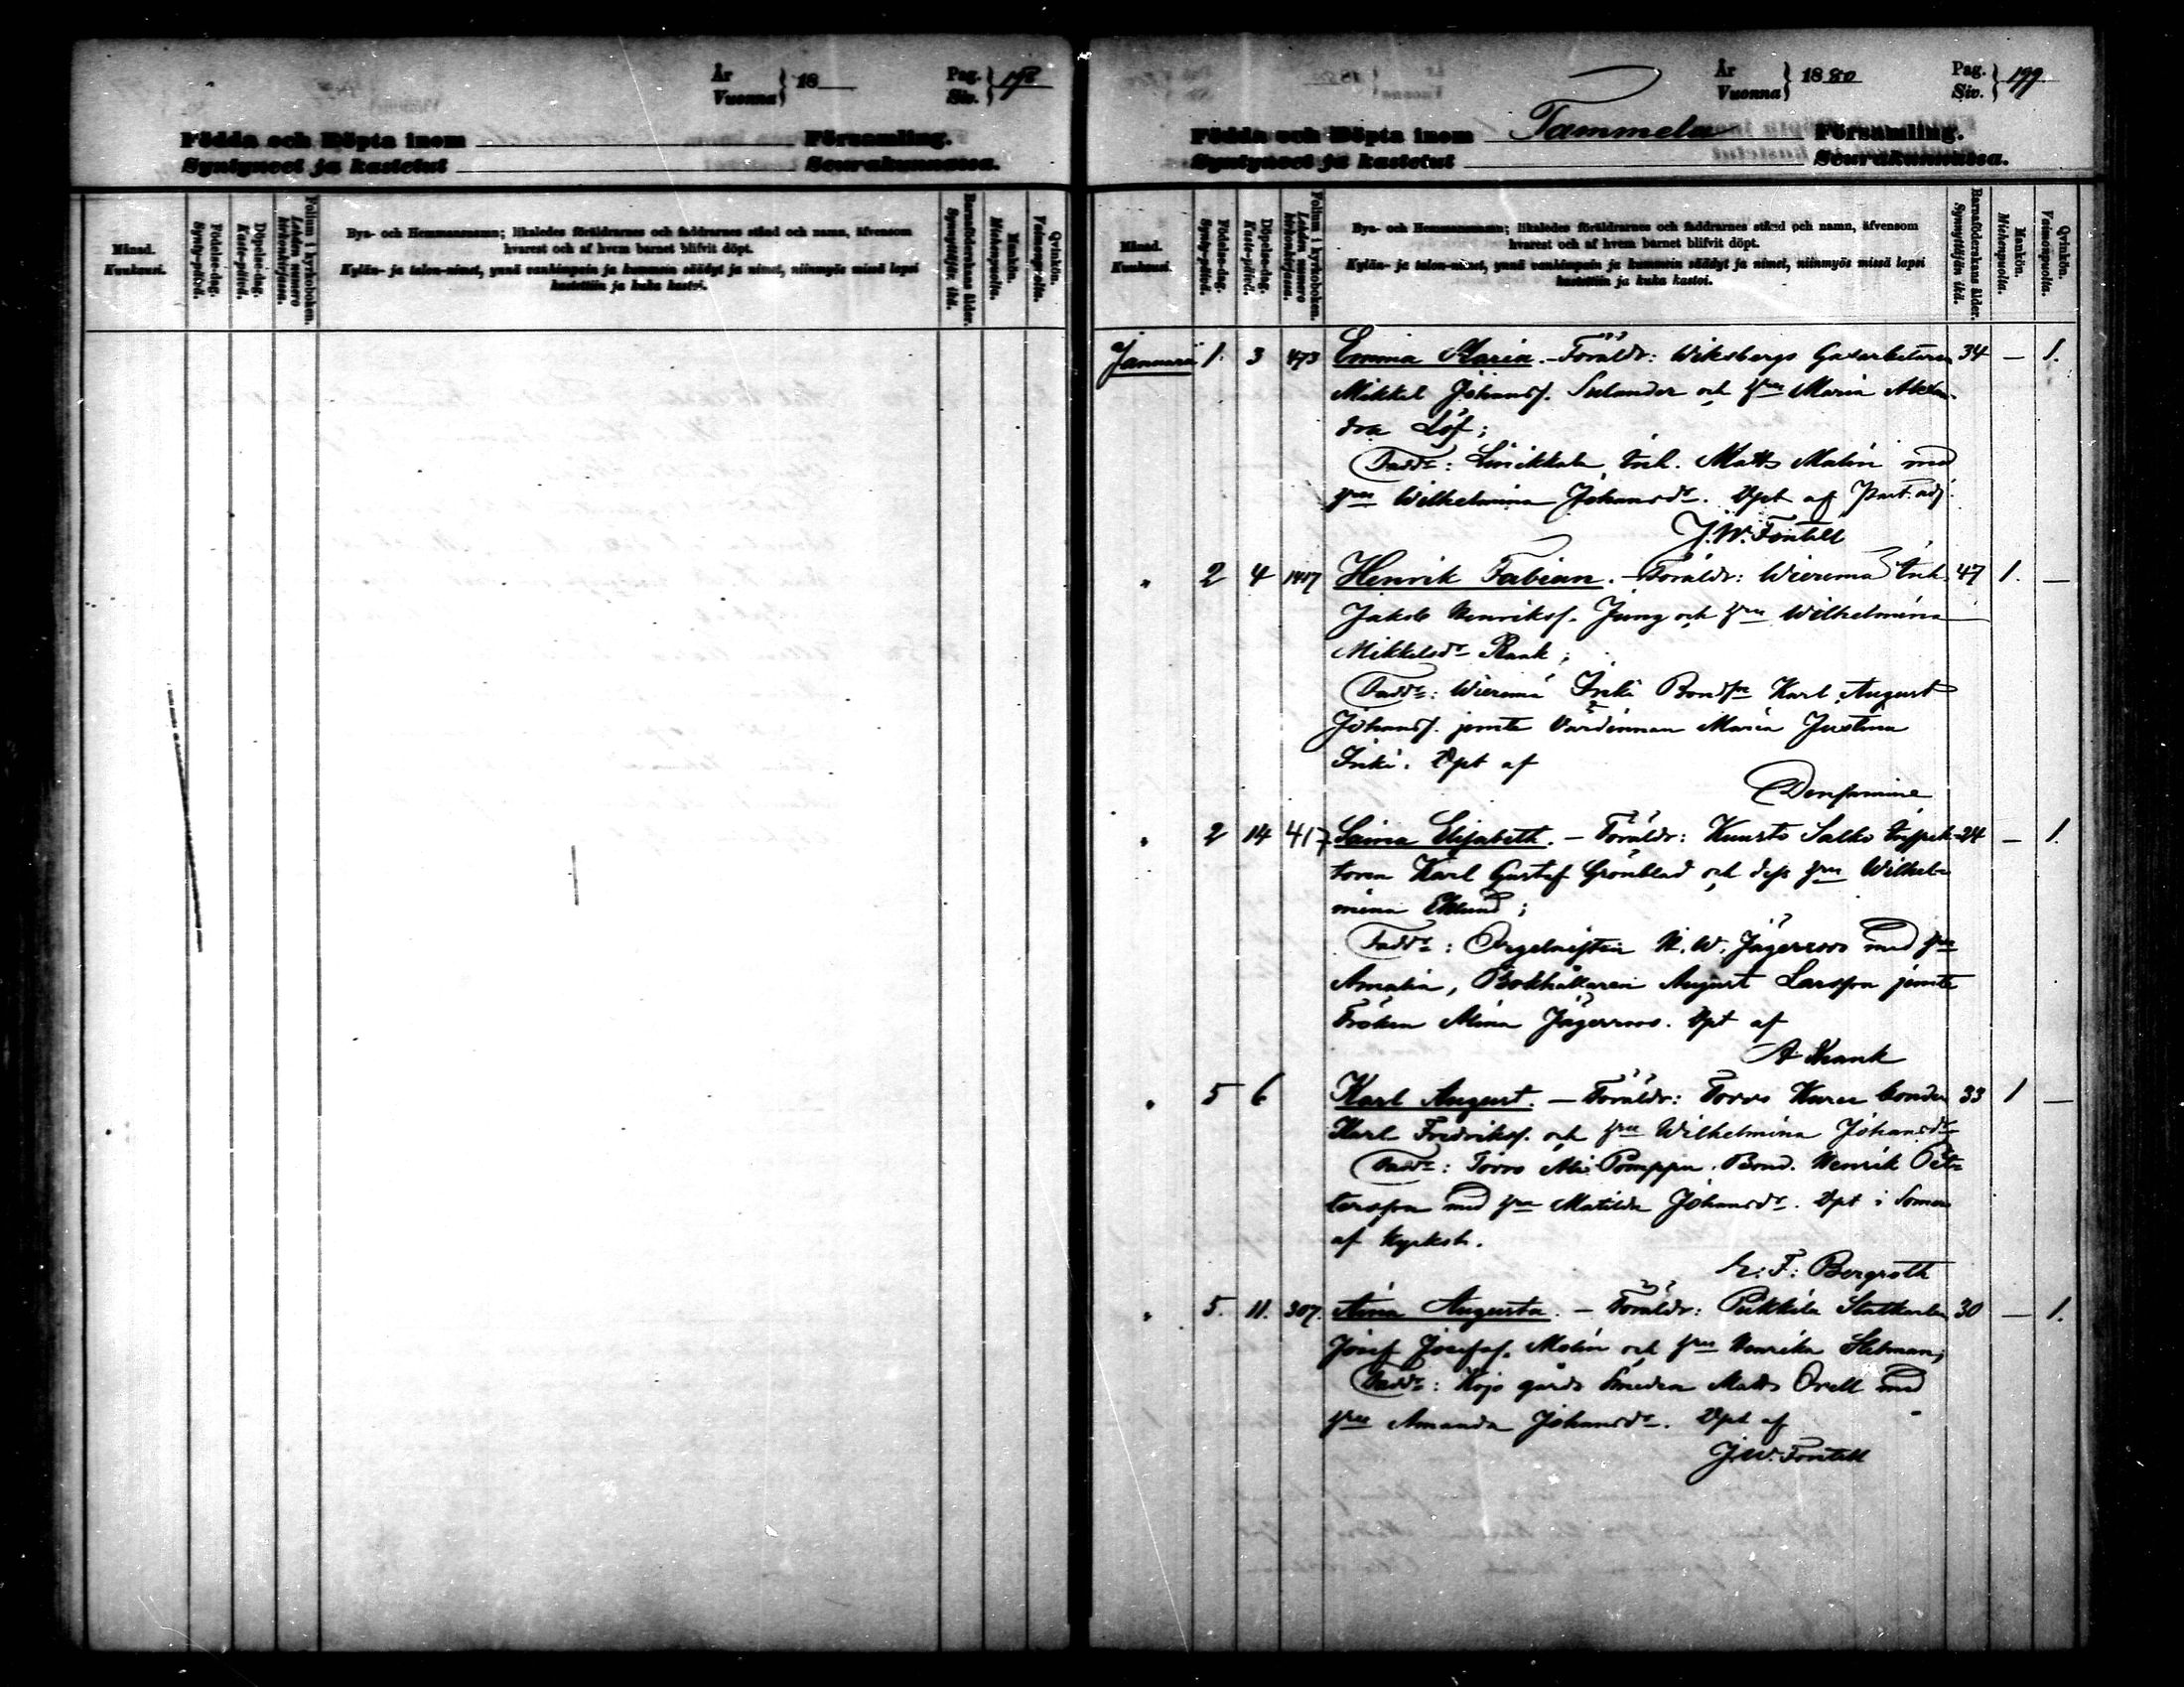 År
Vuonna } 18
Pag.
Siv. } 198
Födda och Döpta inom Församling.
Syntyneet ja kastetut Seurakunnassa.
Månad.
Kuukausi.
Födelse-dag.
Synty-päivä.
Döpelse-dag.
Kaste-päivä.
Folium i kyrkoboken.
Lehden numero kirkonkirjassa.
Bya- och Hemmansnamn; likaledes föräldrarnes och faddrarnes stånd och namn, äfvensom
hvarest och af hvem barnet blifvit döpt.
Kylän- ja talon-nimet, ynnä vanhimpain ja kummein säädyt ja nimet, niinmyös missä lapsi
kastettiin ja kuka kastoi.
Barnaföderskans ålder.
Synnyttäjän ikä.
Mankön.
Miehenpuolta.
Qvinkön.
Vaimonpuolta.
År
Vuonna } 1880
Pag.
Siv. } 199
Födda och Döpta inom Tammela Församling.
Syntyneet ja kastetut Seurakunnassa.
Månad.
Kuukausi.
Födelse-dag.
Synty-päivä.
Döpelse-dag.
Kaste-päivä.
Folium i kyrkoboken.
Lehden numero kirkonkirjassa.
Bya- och Hemmansnamn; likaledes föräldrarnes och faddrarnes stånd och namn, äfvensom
hvarest och af hvem barnet blifvit döpt.
Kylän- ja talon-nimet, ynnä vanhimpain ja kummein säädyt ja nimet, niinmyös missä lapsi
kastettiin ja kuka kastoi.
Barnaföderskans ålder.
Synnyttäjän ikä.
Mankön.
Miehenpuolta.
Qvinkön.
Vaimonpuolta.
Januari 1. 3 473 Emma Maria. – Föräldr: Wiksbergs 34 – 1.
Mikkel Johanss. Selander och hru Maria Alexan-
dra Löf;
Faddr: Inh. Matts Malin med
hru Wilhelmina Johansdr. Döpt af Past. adj.
J.W. Fontell
" 2 4 Henrik Fabian. – Föräldr: Wieremä Inh. 47 1. –
Jakob Henrikss. Jung och hru Wilhelmina
Mikkelsdr Rank;
Faddr: Wieremä Inki Bonds. Karl August
Johanss. jemte Värdinnan Maria Justina
Inki. Döpt af
Densamme
" 2 14 417 Saima Elisabeth. – Föräldr: Kuusto Salko Inspek- 24 – 1.
toren Karl Gustaf Grönblad och dess hru Wilhel-
mina Eklund;
Faddr: Orgelnisten N. W. Jägerroos med hru
Amalia, Bokhållaren August Larsson jemte
Fröken Alina Jägerroos. Döpt af
A Krank
" 5 6 Karl August. – Föräldr: Torro bonden 33 1 –
Karl Fredrikss. och hru Wilhelmina Johansdr
Faddr: Torro Ali Pomppu Bond. Henrik Pet-
tersson med hru Matilda Johansdr. Döpt i Somero
af Kyrkoh.
E. F. Bergroth
" 5. 11. 307. Aina Augusta. – Föräldr: Pukkila Statkarlen 30 – 1.
Josef Josefss. Malin och hru Henrika Helman;
Faddr: Kojo gårds Smeden Matts Orell med
hru Amanda Johansdr. Döpt af
J.W. Fontell